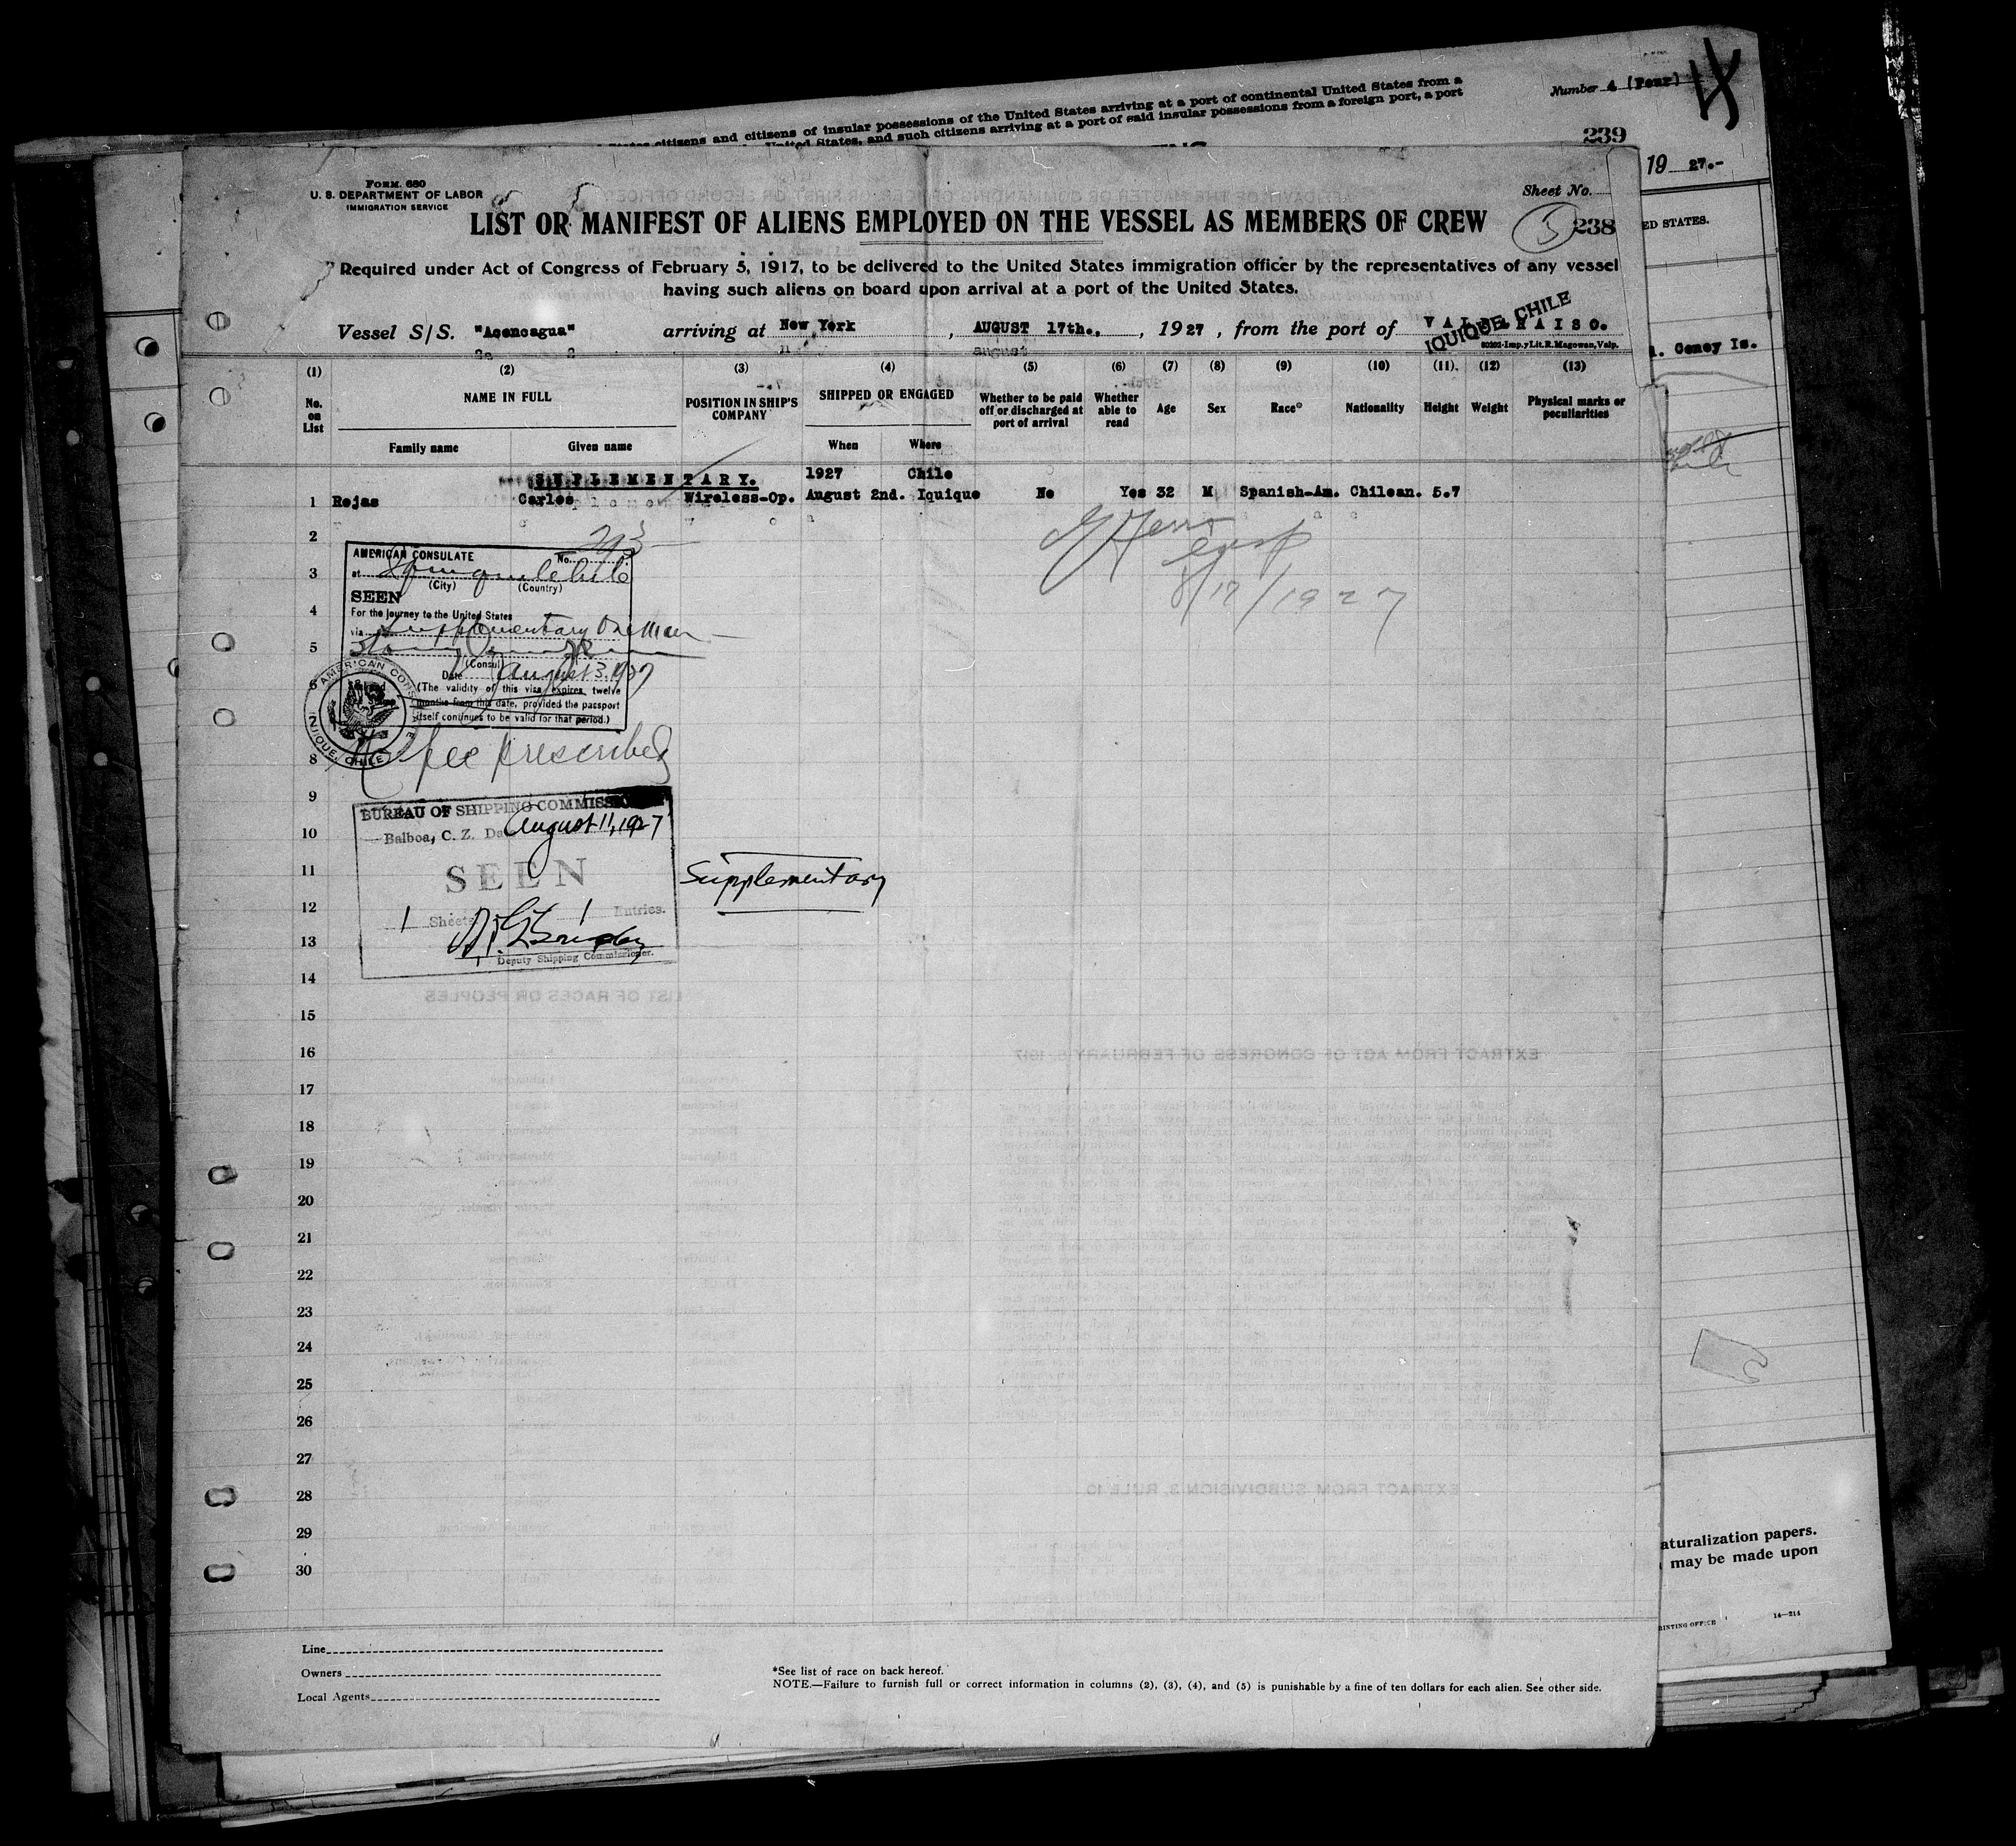 Number 4 (Four)
States citizens and citizens of insular possessions of the United States arriving at a port of continental United States from a
United States, and such citizens arriving at a port of said insular possessions from a foreign port, a port
239
19 27.-
ED STATES.
Coney Is.
FORM. 680
U. S. DEPARTMENT OF LABOR
IMMIGRATION SERVICE
Sheet No.
5
238
LIST OR MANIFEST OF ALIENS EMPLOYED ON THE VESSEL AS MEMBERS OF CREW
Required under Act of Congress of February 5, 1917, to be delivered to the United States immigration officer by the representatives of any vessel
having such aliens on board upon arrival at a port of the United States.
Vessel S/S. "Aconcagua" arriving at New York, AUGUST 17th., 1927, from the port of VALPARAISO.
IQUIQUE, CHILE
80202-Imp.yLit.R.Magowan,Valp.
(1) (2) (3) (4) (5) (6) (7) (8) (9) (10) (11). (12) (13)
No. on List
NAME IN FULL
Family name
Given name
POSITION IN SHIP'S COMPANY
SHIPPED OR ENGAGED
When
Where
Whether to be paid off or discharged at port of arrival
Whether able to read
Age
Sex
Race*
Nationality
Height
Weight
Physical marks or peculiarities
SUPLEMENTARY. 1927 Chile
1 Rojas Carlos Wireless-Op. August 2nd. Iquique No Yes 32 M Spanish-Am. Chilean. 5.7
2
3
4
5
6
7
8
9
10
11
12
13
14
15
16
17
18
19
20
21
22
23
24
25
26
27
28
29
30
8/17/1927
AMERICAN CONSULATE No. 293
at Iquique Chile
(City) (Country)
SEEN
For the journey to the United States
via Supplementary One Man
(Consul)
Date August 3, 1927
(The validity of this visa expires twelve
months from this date, provided the passport
itself continues to be valid for that period.)
AMERICAN CONSULATE
IQUIQUE, CHILE
No fee prescribed
BUREAU OF SHIPPING COMMISSIONER
Balboa, C. Z. Date August 11, 1927
SEEN
1 Sheets 1 Entries.
Deputy Shipping Commissioner.
Supplementary
LIST OF RACES OR PEOPLES
EXTRACT FROM ACT OF CONGRESS OF FEBRUARY 5, 1917
EXTRACT FROM SUBDIVISION 3, RULE 10
Line
Owners
Local Agents
*See list of race on back hereof.
NOTE.—Failure to furnish full or correct information in columns (2), (3), (4), and (5) is punishable by a fine of ten dollars for each alien. See other side.
aturalization papers.
may be made upon
RINTING OFFICE 14—214